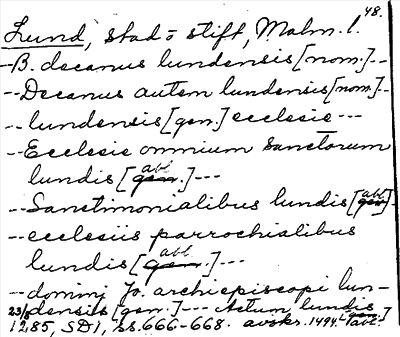 48.
Lund, stad o stift, Malm. l.
--B. decanus lundensis [nom.]--
--Decanus autem lundensis [nom.]--
--lundensis [gen.] ecclesie---
--Ecclesie omnium sanctorum
lundis [gen. abl.]---
--Sanctimonialibus lundis [gen. abl.]
--ecclesiis parrochialibus
lundis [gen. abl.]---
--domini Jo. archiepiscopi lun-
densis [gen.]--- Actum lundis [gen.]
23/3 1285, SD1, ss. 666-668. avskr. 1494. abl.